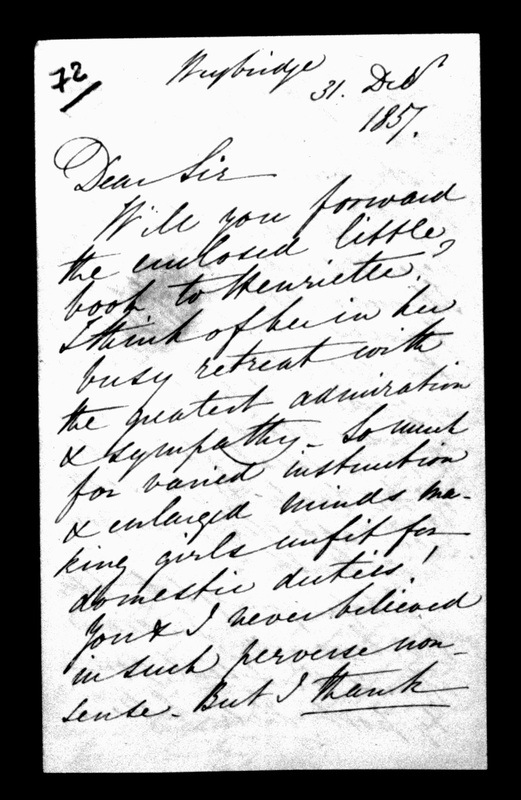 72
Weybridge
31. Decr
1857.
Dear Sir
Will you forward
the enclosed little
book to Henriette?
I think of her in her
busy retreat with
the greatest admiration
& sympathy - So much
for varied instruction
& enlarged minds ma-
king girls unfit for
domestic duties!
You & I never believed
in such perverse non-
sense. But I thank